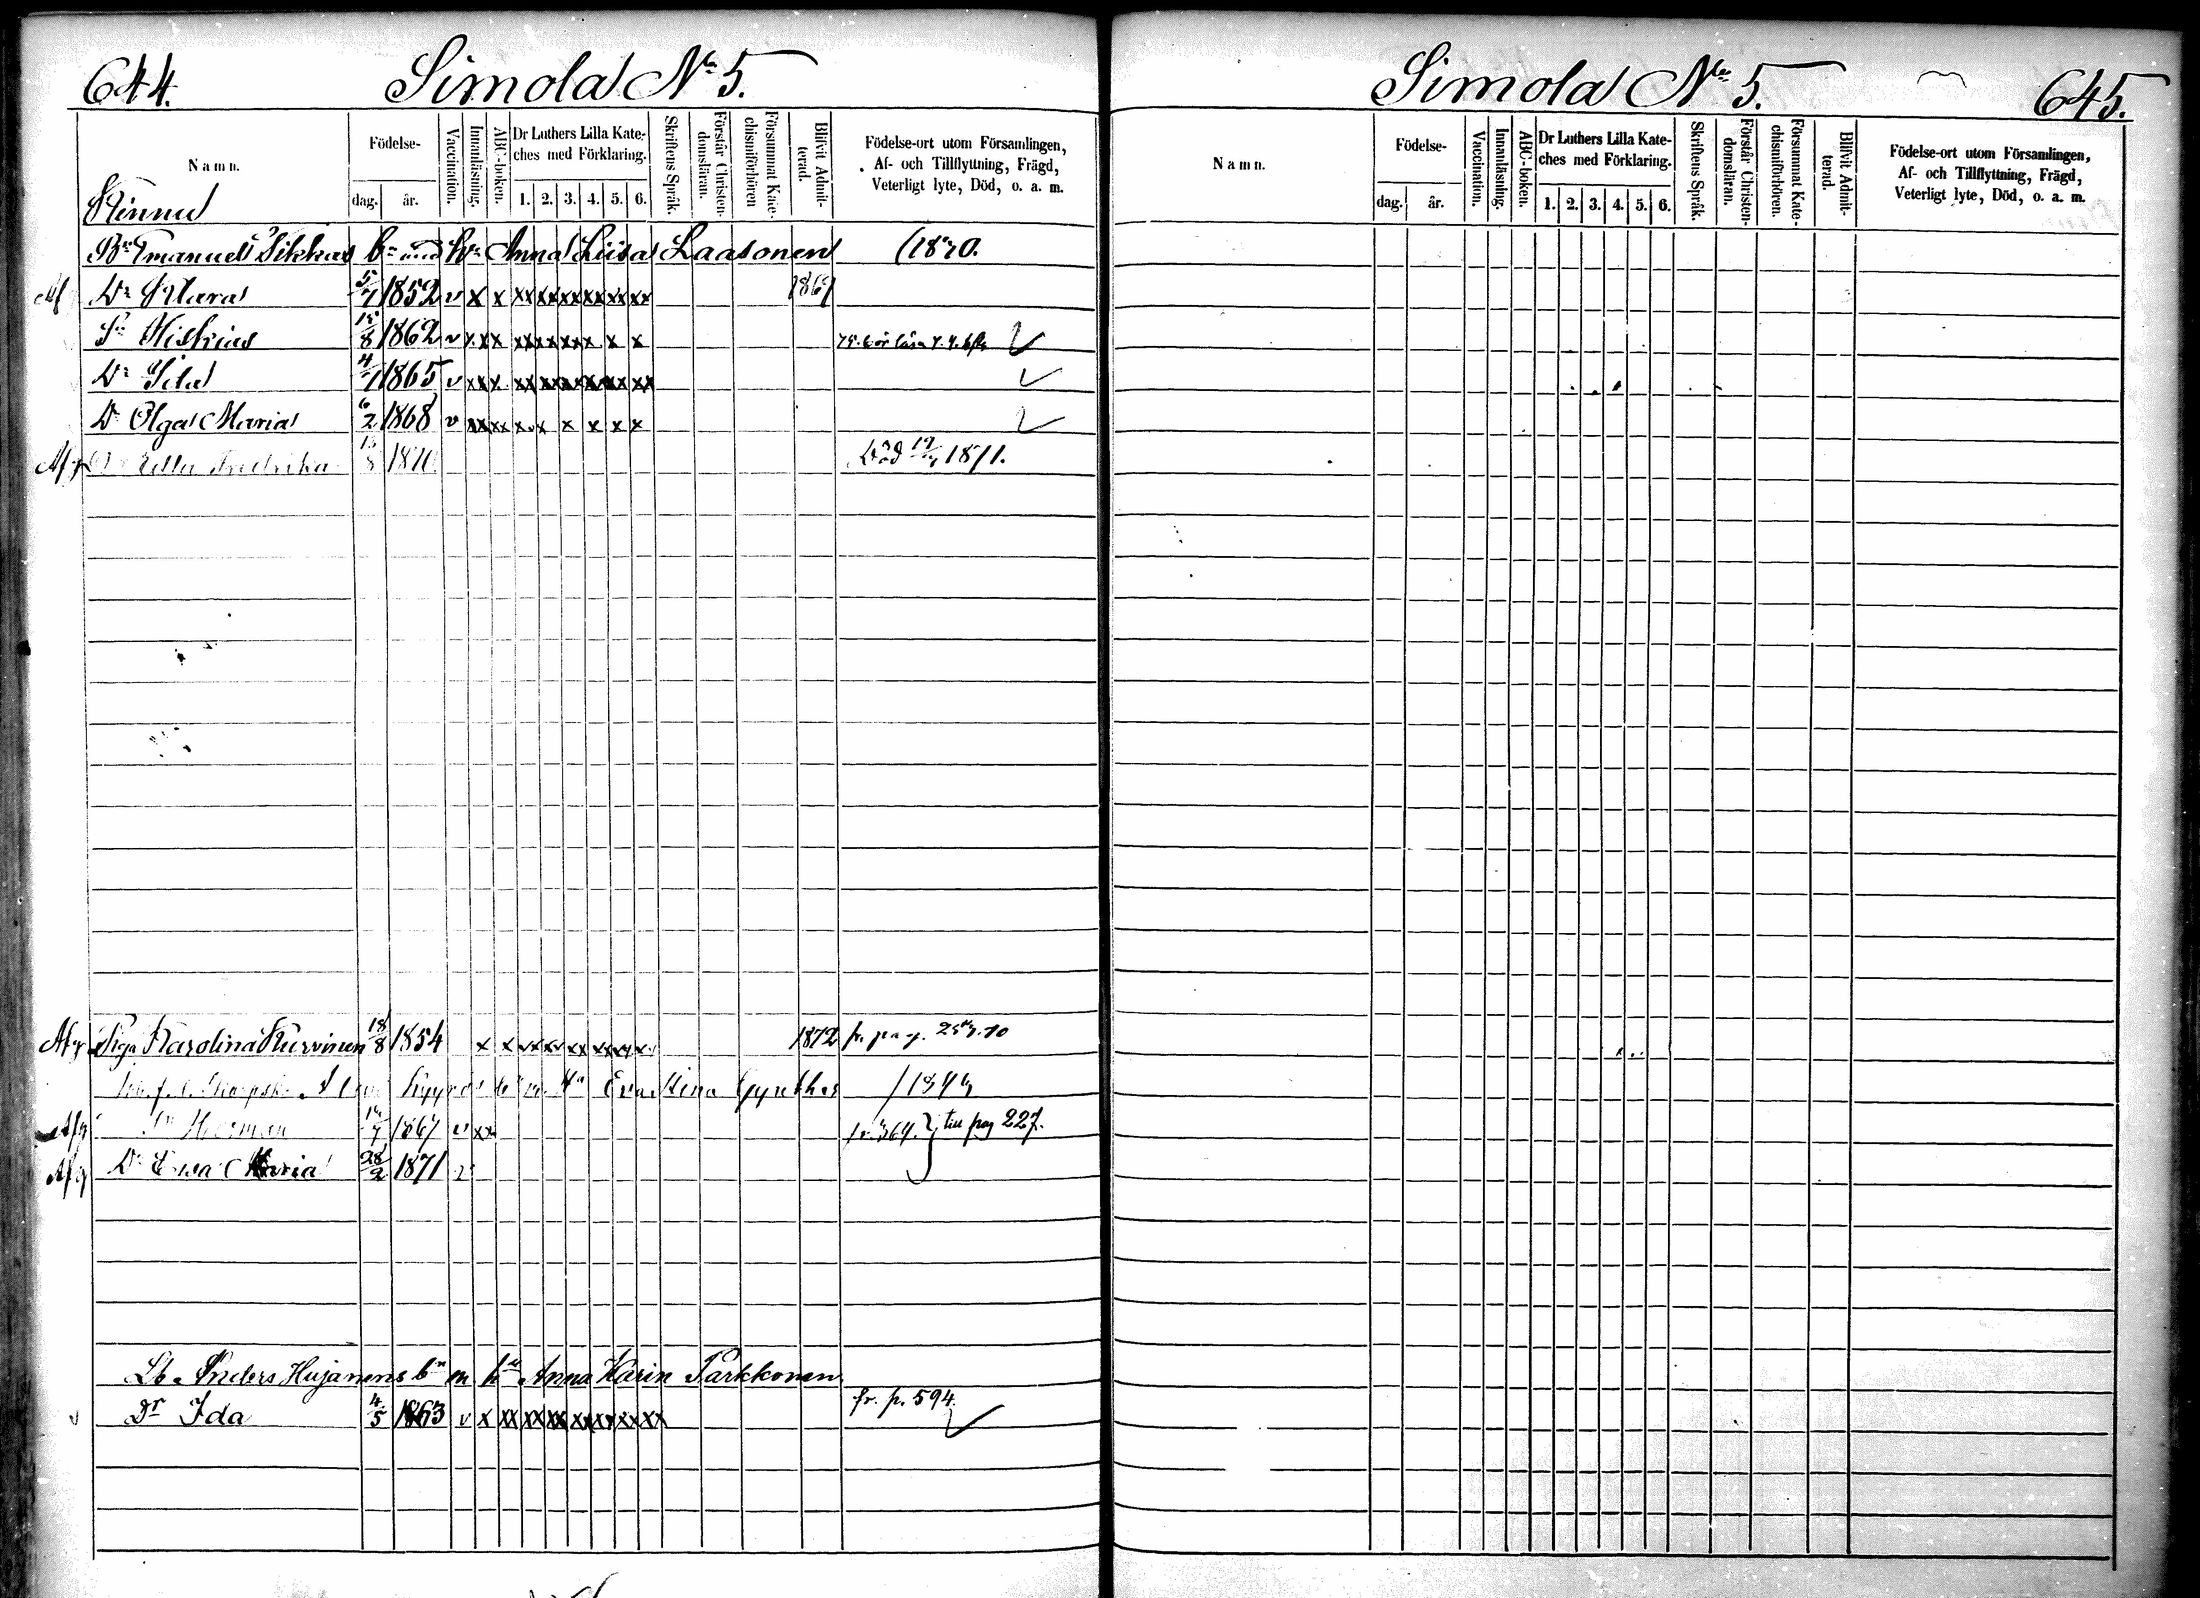 644.
Simola No 5.
Namn.
Födelse-
dag. år.
Vaccination.
Innanläsning.
ABC-boken.
Dr Luthers Lilla Kate-
ches med Förklaring.
1. 2. 3. 4. 5. 6.
Skriftens Språk.
Förstår Christen-
domsläran.
Försummat Kate-
chismiförhören
Blifvit Admit-
terad.
Födelse-ort utom Församlingen,
Af- och Tillflyttning, Frägd,
Veterligt lyte, Död, o. a. m.
Kinnu
Bn Emanuel Sikkas bn med hn Anna Liisa Laasonen (1870.
Dr Klara 5/7 1852 v x x xx xx xx xx xx xx 1869
Sn Hiskias 1862 v
Dr Ida 4/7 1865 v
Dr Olga Maria 6/2 1868 v
Ulla Fredrika 1870 Död 1871.
Afg Piga Karolina Kurvinen 18/8 1854 1872 fr. pag.
bn m Hu Eva Stina Gynther
Afg Sn Herman 1867 v xx fr. 364. till pag 227.
Afg Dr Ewa Maria 28/2 1871 v
Lb Anders Hujanens bn m hu Anna Karin Parkkonen
Dr Ida 4/5 1863 v x xx xx xx xx xx xx xx fr. p. 594.
Simola No 5.
645.
Namn.
Födelse-
dag. år.
Vaccination.
Innanläsning.
ABC-boken.
Dr Luthers Lilla Kate-
ches med Förklaring.
1. 2. 3. 4. 5. 6.
Skriftens Språk.
Förstår Christen-
domsläran.
Försummat Kate-
chismiförhören.
Blifvit Admit-
terad.
Födelse-ort utom Församlingen,
Af- och Tillflyttning, Frägd,
Veterligt lyte, Död, o. a. m.